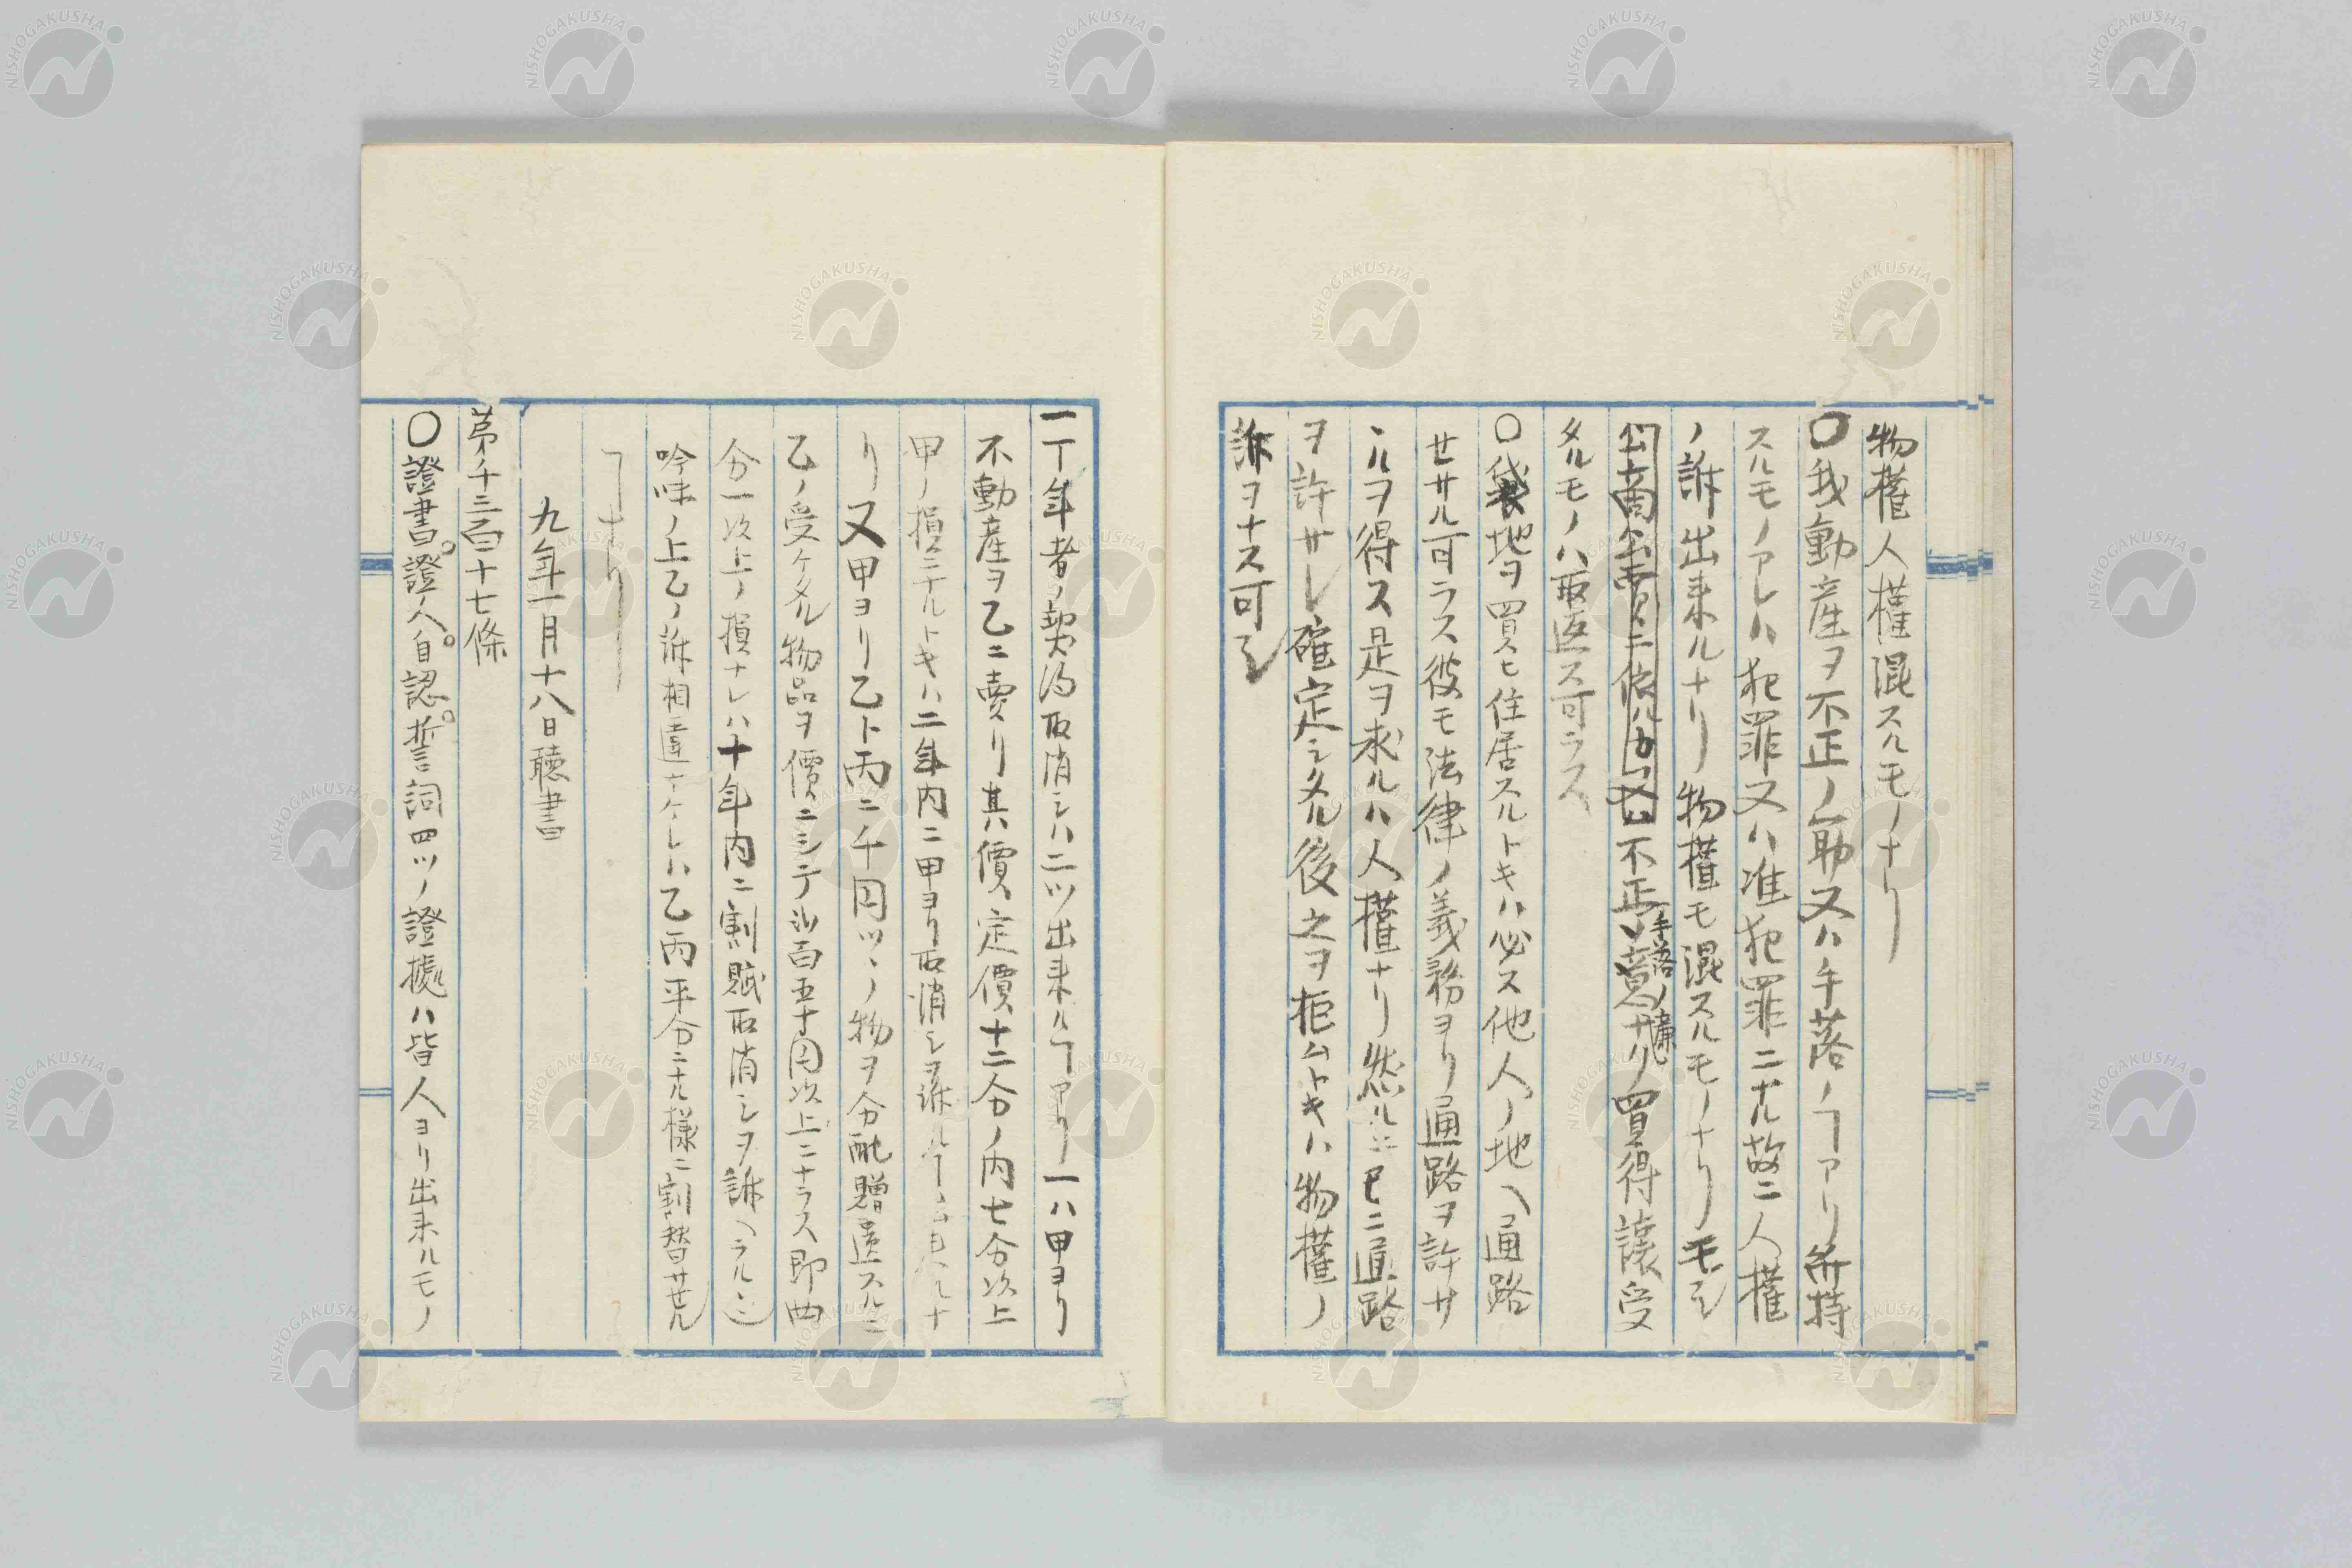 物權人權混スルモノナリ
〇我動産ヲ不正ノ所又ハ手落ノヿアリ所持
スルモノアレハ犯罪又ハ准犯罪ニナル故ニ人權
ノ訴出来ルナリ物權モ混スルモノナリモシ
不正手落ノ廉ナリ買得讓受
タルモノハ取返ス可ラス
〇袋地ヲ買ヒ住居スルトキハ必ス他人ノ地ヘ通路
セサル可ラス彼モ法律ノ義務ヨリ通路ヲ許サ
ヽルヲ得ス是ヲ求ルハ人權ナリ然ルニ已ニ通路
ヲ許サレ確定シタル後之ヲ拒ムトキハ物權ノ
訴ヲナス可シ
一丁年者ノ契約取消シハ二ツ出来ルヿアリ一ハ甲ヨリ
不動産ヲ乙ニ賣リ其價定價十二分ノ内七分以上
甲ノ損ニナルトキハ二年内ニ甲ヨリ取消シヲ訴ルヿ出来ルナ
リ又甲ヨリ乙ト丙ニ千円ツヽノ物ヲ分配贈遺スルニ
乙ノ受ケタル物品ヲ價ニシテ百五十円以上ニナラス即四
分一以上ノ損ナレハ十年内ニ割賦取消シヲ訴ヘラルヽ
吟味ノ上乙ノ訴相違ナケレハ乙丙平分ニナル様ニ割替サセル
ヿナリ
九年一月十八日聴書
第千三百十七條
〇證書。證人。自認。誓詞四ツノ證據ハ皆人ヨリ出来ルモノ
NISHOGAKUSHA